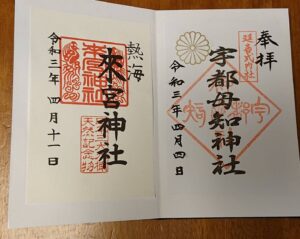 奉拝
延喜式内社
宇都母知神社
令和三年四月四日
熱海
來宮神社
来宮神社
天然記念物
令和三年四月十一日